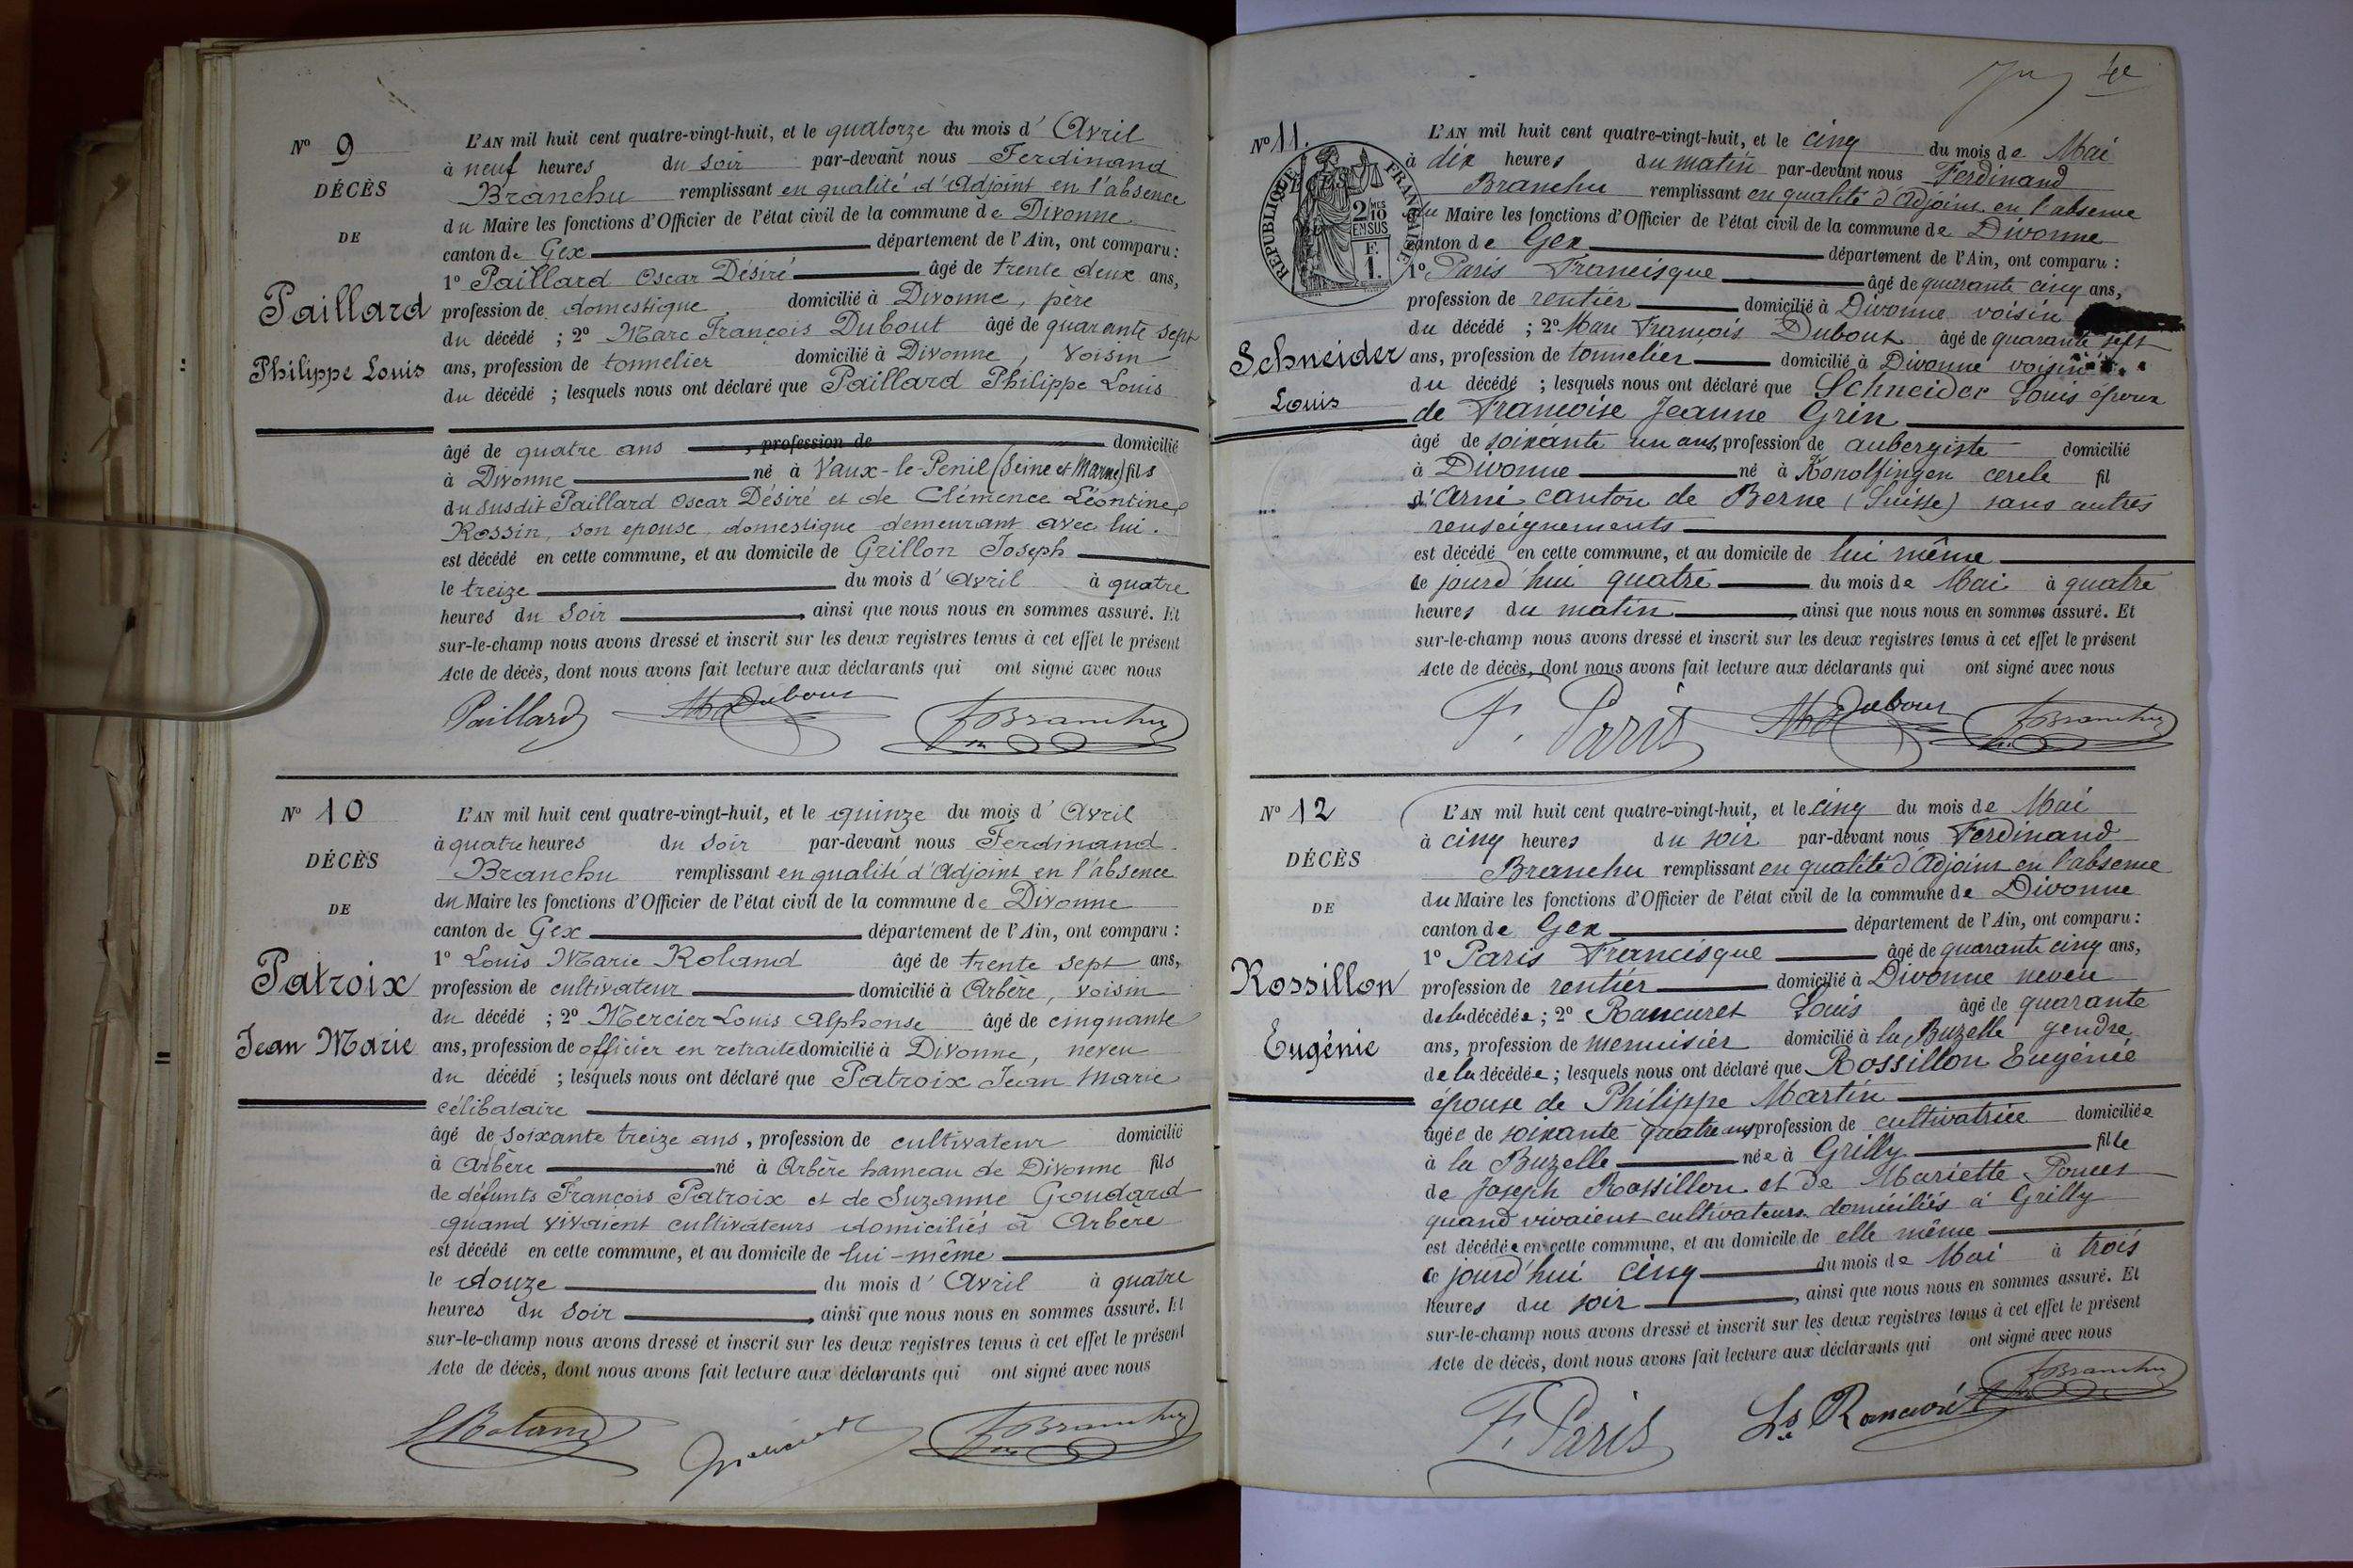 Nº 9
DÉCÈS
DE
Paillard
Philippe Louis
L'AN mil huit cent quatre-vingt-huit, et le quatorze du mois d'Avril
à neuf heures du soir par-devant nous Ferdinand
Branchu remplissant en qualité d'Adjoint en l'absence
du Maire les fonctions d'Officier de l'état civil de la commune de Divonne
canton de Gex département de l'Ain, ont comparu :
1º Paillard Oscar Désiré âgé de trente deux ans,
profession de domestique domicilié à Divonne, père
du décédé ; 2º Marc François Dubout âgé de quarante sept
ans, profession de tonnelier domicilié à Divonne, voisin
du décédé ; lesquels nous ont déclaré que Paillard Philippe Louis
âgé de quatre ans , profession de domicilié
à Divonne né à Vaux-le-Penil (Seine et Marne) fils
du susdit Paillard Oscar Désiré et de Clémence Léontine
Rossin, son epouse, domestique demeurant avec lui.
est décédé en cette commune, et au domicile de Grillon Joseph
le treize du mois d'Avril à quatre
heures du soir , ainsi que nous nous en sommes assuré. Et
sur-le-champ nous avons dressé et inscrit sur les deux registres tenus à cet effet le présent
Acte de décès, dont nous avons fait lecture aux déclarants qui ont signé avec nous
Paillard Dubout FBranchu
Nº 10
DÉCÈS
DE
Patroix
Jean Marie
L'AN mil huit cent quatre-vingt-huit, et le quinze du mois d'Avril
à quatre heures du soir par-devant nous Ferdinand
Branchu remplissant en qualité d'Adjoint en l'absence
du Maire les fonctions d'Officier de l'état civil de la commune de Divonne
canton de Gex département de l'Ain, ont comparu :
1º Louis Marie Roland âgé de trente sept ans,
profession de cultivateur domicilié à Arbère, voisin
du décédé ; 2º Mercier Louis Alphonse âgé de cinquante
ans, profession de officier en retraite domicilié à Divonne, neveu
du décédé ; lesquels nous ont déclaré que Patroix Jean Marie
célibataire
âgé de soixante treize ans, profession de cultivateur domicilié
à Arbère né à Arbère hameau de Divonne fils
de défunts François Patroix et de Suzanne Goudard
quand vivaient cultivateurs domiciliés à Arbère
est décédé en cette commune, et au domicile de lui-même
le douze du mois d'Avril à quatre
heures du soir , ainsi que nous nous en sommes assuré. Et
sur-le-champ nous avons dressé et inscrit sur les deux registres tenus à cet effet le présent
Acte de décès, dont nous avons fait lecture aux déclarants qui ont signé avec nous
LRoland FBranchu
4e
Nº 11.
RÉPUBLIQUE FRANÇAISE
2 MES
10
EN SUS
F.
1.
Schneider
Louis
L'AN mil huit cent quatre-vingt-huit, et le cinq du mois de Mai
à dix heures du matin par-devant nous Ferdinand
Branchu remplissant en qualité d'Adjoint en l'absence
du Maire les fonctions d'Officier de l'état civil de la commune de Divonne
canton de Gex département de l'Ain, ont comparu :
1º Paris Francisque âgé de quarante cinq ans,
profession de rentier domicilié à Divonne voisin
du décédé ; 2º Marc François Dubout âgé de quarante sept
ans, profession de tonnelier domicilié à Divonne voisin
du décédé ; lesquels nous ont déclaré que Schneider Louis époux
de Françoise Jeanne Grin
âgé de soixante un ans, profession de aubergiste domicilié
à Divonne né à Konolfingen cercle fil
d'Arni canton de Berne (Suisse) sans autres
renseignements
est décédé en cette commune, et au domicile de lui même
ce jourd'hui quatre du mois de Mai à quatre
heures du matin , ainsi que nous nous en sommes assuré. Et
sur-le-champ nous avons dressé et inscrit sur les deux registres tenus à cet effet le présent
Acte de décès, dont nous avons fait lecture aux déclarants qui ont signé avec nous
F. Paris Dubout FBranchu
Nº 12
DÉCÈS
DE
Rossillon
Eugénie
L'AN mil huit cent quatre-vingt-huit, et le cinq du mois de Mai
à cinq heures du soir par-devant nous Ferdinand
Branchu remplissant en qualité d'Adjoint en l'absence
du Maire les fonctions d'Officier de l'état civil de la commune de Divonne
canton de Gex département de l'Ain, ont comparu :
1º Paris Francisque âgé de quarante cinq ans,
profession de rentier domicilié à Divonne neveu
de la décédée ; 2º Rancuret Louis âgé de quarante
ans, profession de menuisier domicilié à la Buzelle gendre
de la décédée ; lesquels nous ont déclaré que Rossillon Eugénie
épouse de Philippe Martin
âgée de soixante quatre ans profession de cultivatrice domiciliée
à la Buzelle née à Grilly fille
de Joseph Rossillon et de Mariette Poncet
quand vivaient cultivateurs domiciliés à Grilly
est décédée en cette commune, et au domicile de elle même
ce jourd'hui cinq du mois de Mai à trois
heures du soir , ainsi que nous nous en sommes assuré. Et
sur-le-champ nous avons dressé et inscrit sur les deux registres tenus à cet effet le présent
Acte de décès, dont nous avons fait lecture aux déclarants qui ont signé avec nous
F. Paris Ls Rancuret FBranchu